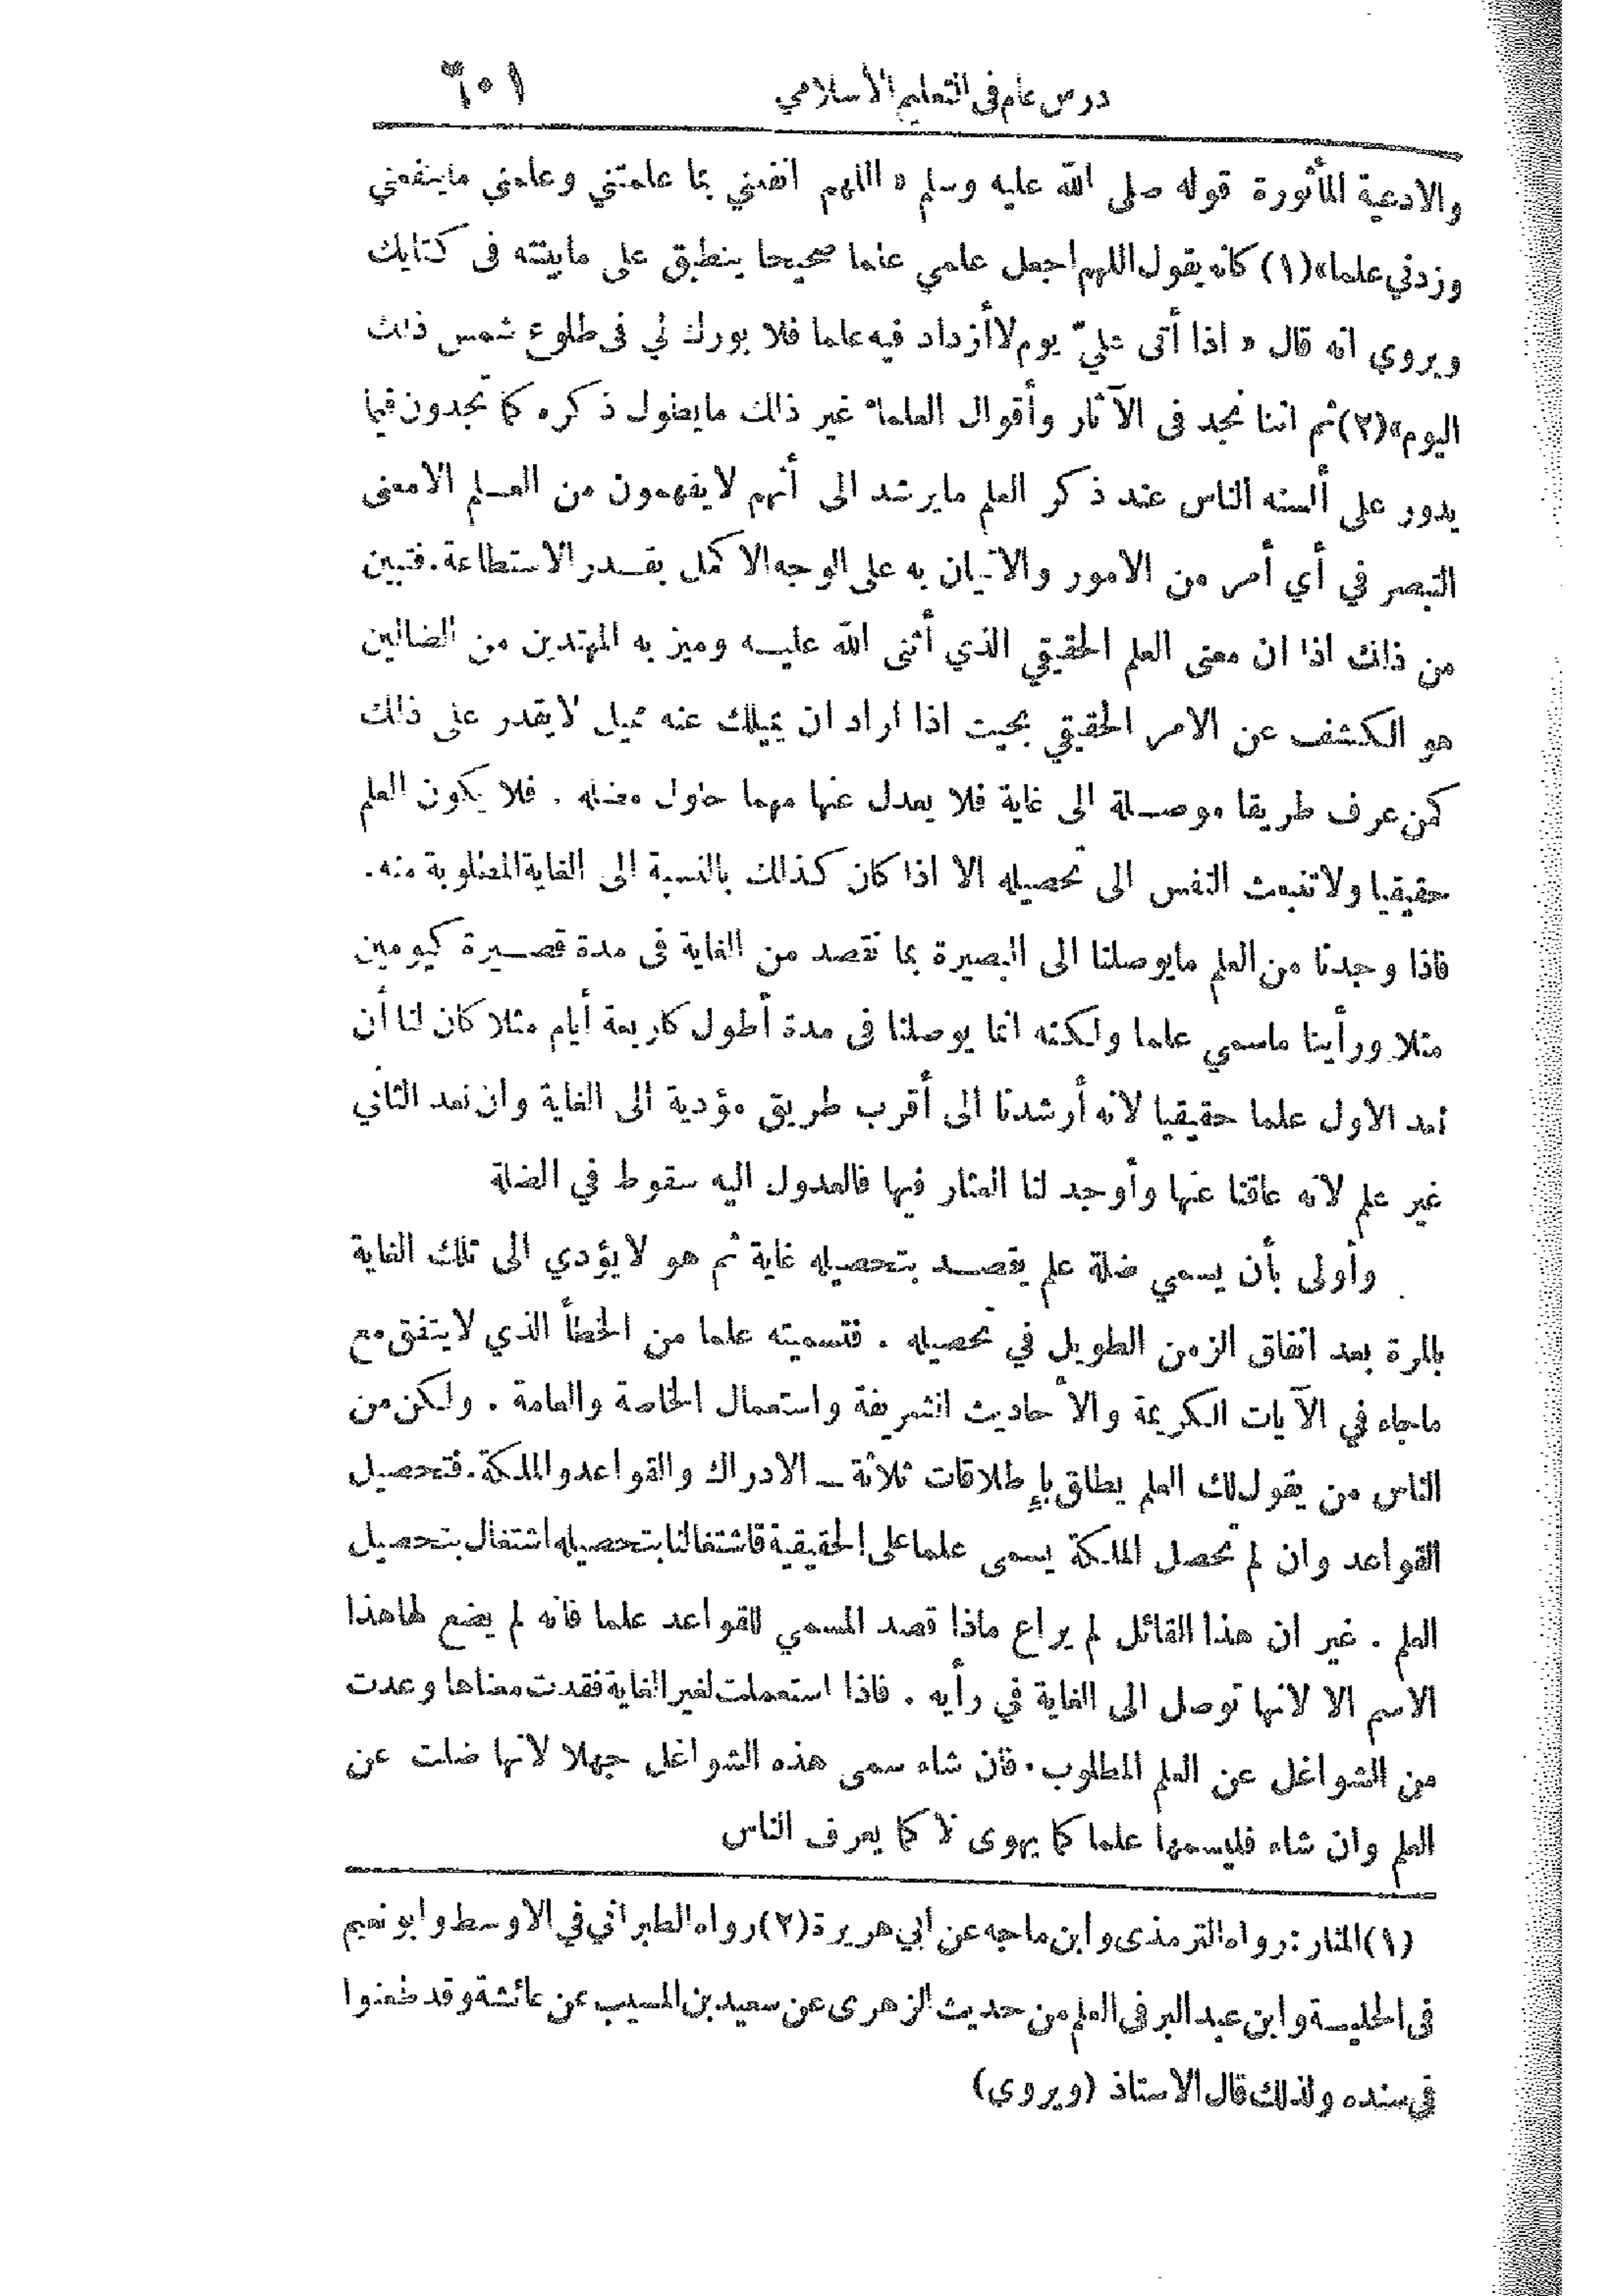 درس عام فى التعليم الأسلامي
والادعية المأثورة قوله صلى الله عليه وسلم « اللهم انفعني بما علمتني وعلمني ماينفعني
وزدني علما»(١) كأنه يقول اللهم اجعل علمي علما صحيحا ينطبق على مابينته فى كتابك
ويروى انه قال « اذا أتى عليّ يوم لاأزداد فيه علما فلا بورك لي فى طلوع شمس ذلك
اليوم»(٢) ثم اننا نجد فى الآثار وأقوال العلماء غير ذلك مايطول ذكره كما تجدون فيما
يدور على ألسنه الناس عند ذكر العلم مايرشد الى أنهم لايفهمون من العلم الامعنى
التبصر في أي أمر من الامور والاتيان به على الوجه الاكمل بقدر الاستطاعة. فتبين
من ذلك اذا ان معنى العلم الحقيقي الذي أثنى الله عليه وميز به المهتدين من الضالين
هو الكشف عن الامر الحقيقي بحيث اذا اراد ان يميلك عنه مميل لايقدر على ذلك
كمن عرف طريقا موصلة الى غاية فلا يعدل عنها مهما حاول مضله . فلا يكون العلم
حقيقيا ولاتنبعث النفس الى تحصيله الا اذا كان كذلك بالنسبة الى الغاية المطلوبة منه.
فاذا وجدنا من العلم مايوصلنا الى البصيرة بما نقصد من الغاية فى مدة قصيرة كيومين
مثلا ورأينا ماسمي علما ولكنه انما يوصلنا فى مدة أطول كاربعة أيام مثلا كان لنا أن
نعد الاول علما حقيقيا لانه أرشدنا الى أقرب طريق مؤدية الى الغاية وان نعد الثاني
غير علم لانه عاقنا عنها وأوجد لنا العثار فيها فالعدول اليه سقوط في الضلة
وأولى بأن يسمي ضلة علم يقصد بتحصيله غاية ثم هو لايؤدي الى تلك الغاية
بالمرة بعد انفاق الزمن الطويل في تحصيله . فتسميته علما من الخطأ الذي لايتفق مع
ماجاء في الآيات الكريمة والأحاديث الشريفة واستعمال الخاصة والعامة . ولكن من
الناس من يقول لك العلم يطلق بإطلاقات ثلاثة ــ الادراك والقواعد والملكة. فتحصيل
القواعد وان لم تحصل الملكة يسمى علما على الحقيقية فاشتغالنا بتحصيله اشتغال بتحصيل
العلم . غير ان هذا القائل لم يراع ماذا قصد المسمي للقواعد علما فانه لم يضع لها هذا
الاسم الا لانها توصل الى الغاية في رأيه . فاذا استعملت لغير الغاية فقدت معناها وعدت
من الشواغل عن العلم المطلوب. فان شاء سمى هذه الشواغل جهلا لانها ضلت عن
العلم وان شاء فليسمها علما كما يهوى لا كما يعرف الناس
(١) المنار: رواه الترمذى وابن ماجه عن أبي هريرة (٢) رواه الطبراني في الاوسط وابو نعيم
فى الحلية وابن عبد البر فى العلم من حديث الزهرى عن سعيد بن المسيب عن عائشة وقد طعنوا
في سنده ولذلك قال الاستاذ (ويروي)